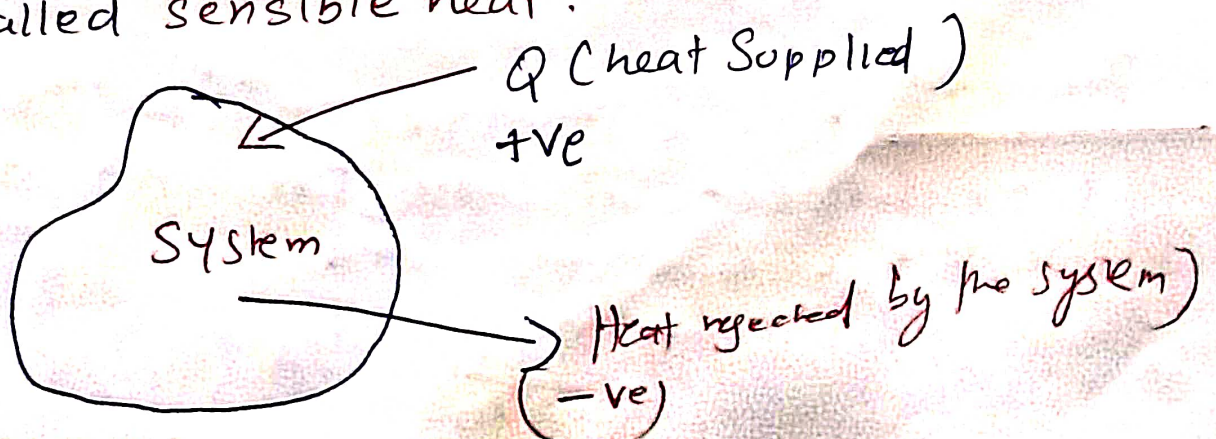 alled sensible heat.
Q (heat Supplied)
+ve
System
Heat rejected by the system)
(-ve)